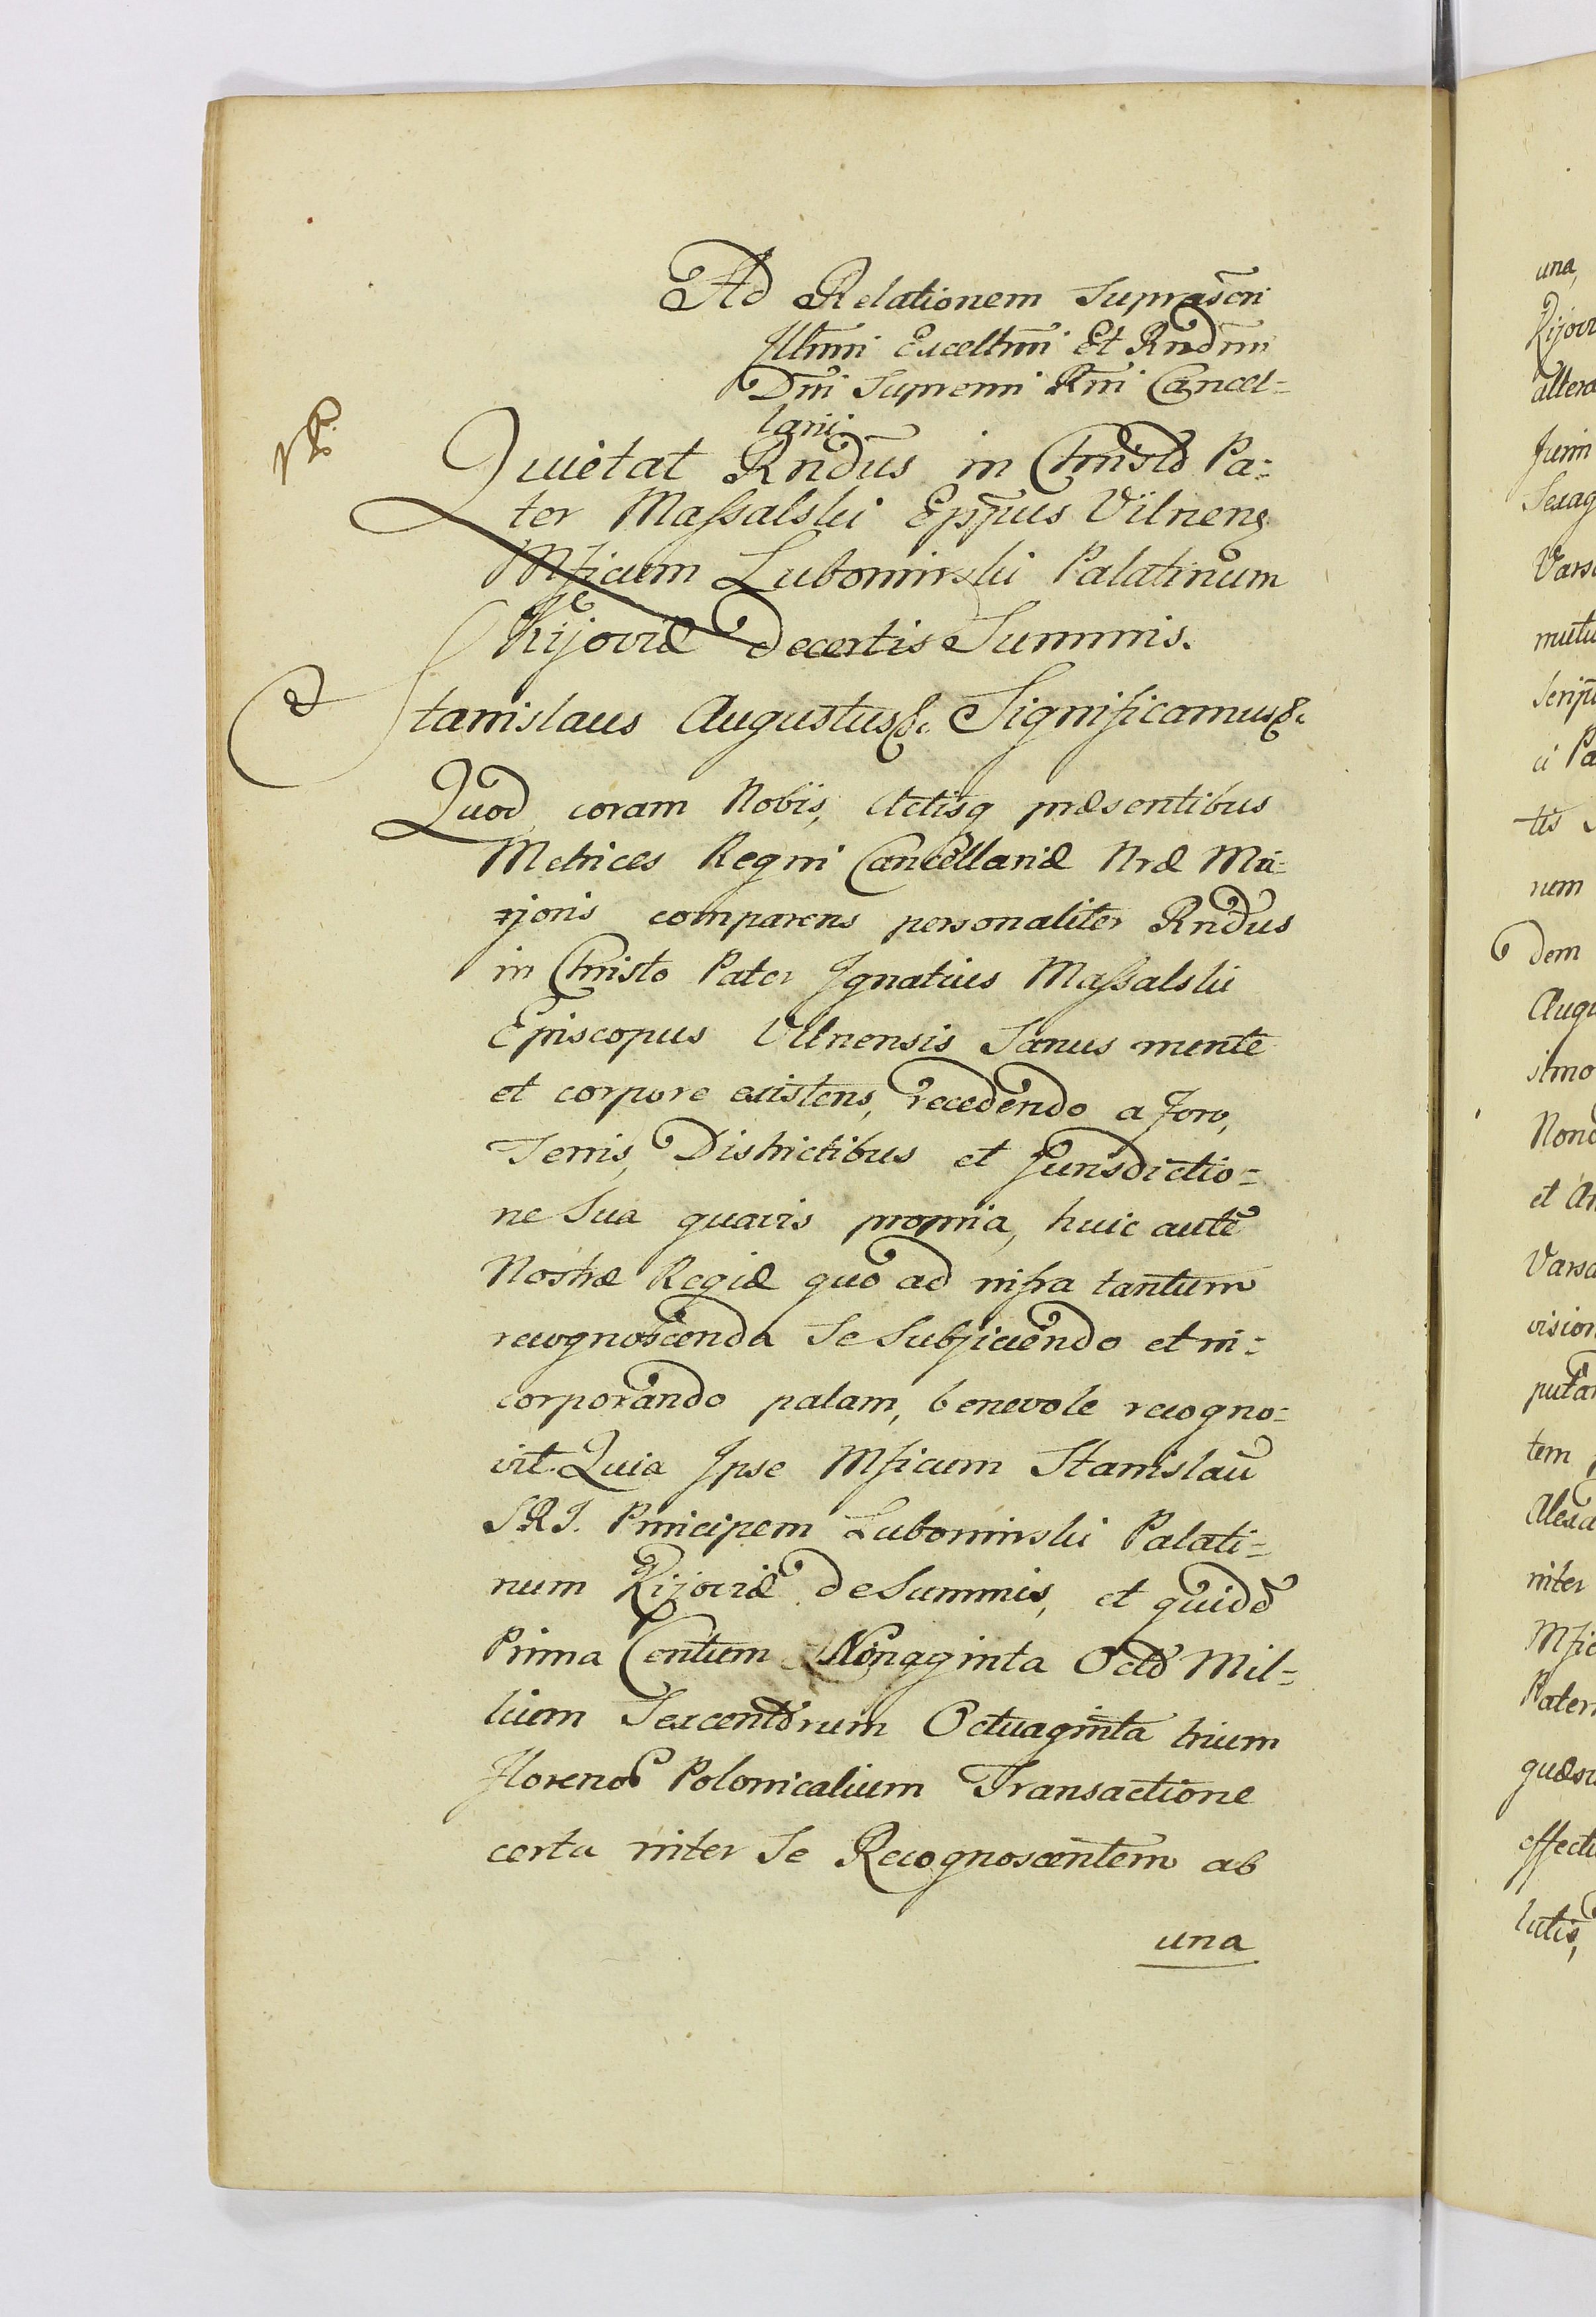 Ad Relationem Suprascri
Illmi Excellmi Et Rndmi
Dni Supremi Rni Cancel=
larii.
Quietat Rndus in Christo Pa=
ter Massalski Eppus Vilnens
Mficum Lubomirski Palatinum
Kijoviæ de certis Summis.
Stanislaus Augustus &c Significamus &c
Quod coram Nobis, Actisq præsentibus
Metrices Regni Cancellariæ Nræ Ma=
joris comparens personaliter Rndus
in Christo Pater Ignatius Massalski
Episcopus Vilnensis Sanus mente
et corpore existens, recedendo a Foro,
Terris, Districtibus et Jurisdictio=
ne Sua quavis propria, huic autē
Nostræ Regiæ quo ad infra tantum
recognoscenda Se Subjiciendo et in=
corporando palam, benevole recogno=
vit. Quia Ipse Mficum Stanislaū
SRI. Principem Lubomirski Palati=
num Kijoviæ de Summis, et quidē
Prima Centum Nonaginta Octo Mil=
lium Sexcentorum Octuaginta trium
Floreno Polonicalium Transactione
certa inter Se Recognoscentem ab
una
una,
Kijovi
altera
Junii
Sexag
Vars
mutu
Scrip
ci Pa
tis S
num
dem
Augu
simo
Nono
et An
Varsa
vision
puta
tem
Alexa
inter
Mfic
Pater
quæsi
effectu
lutis,